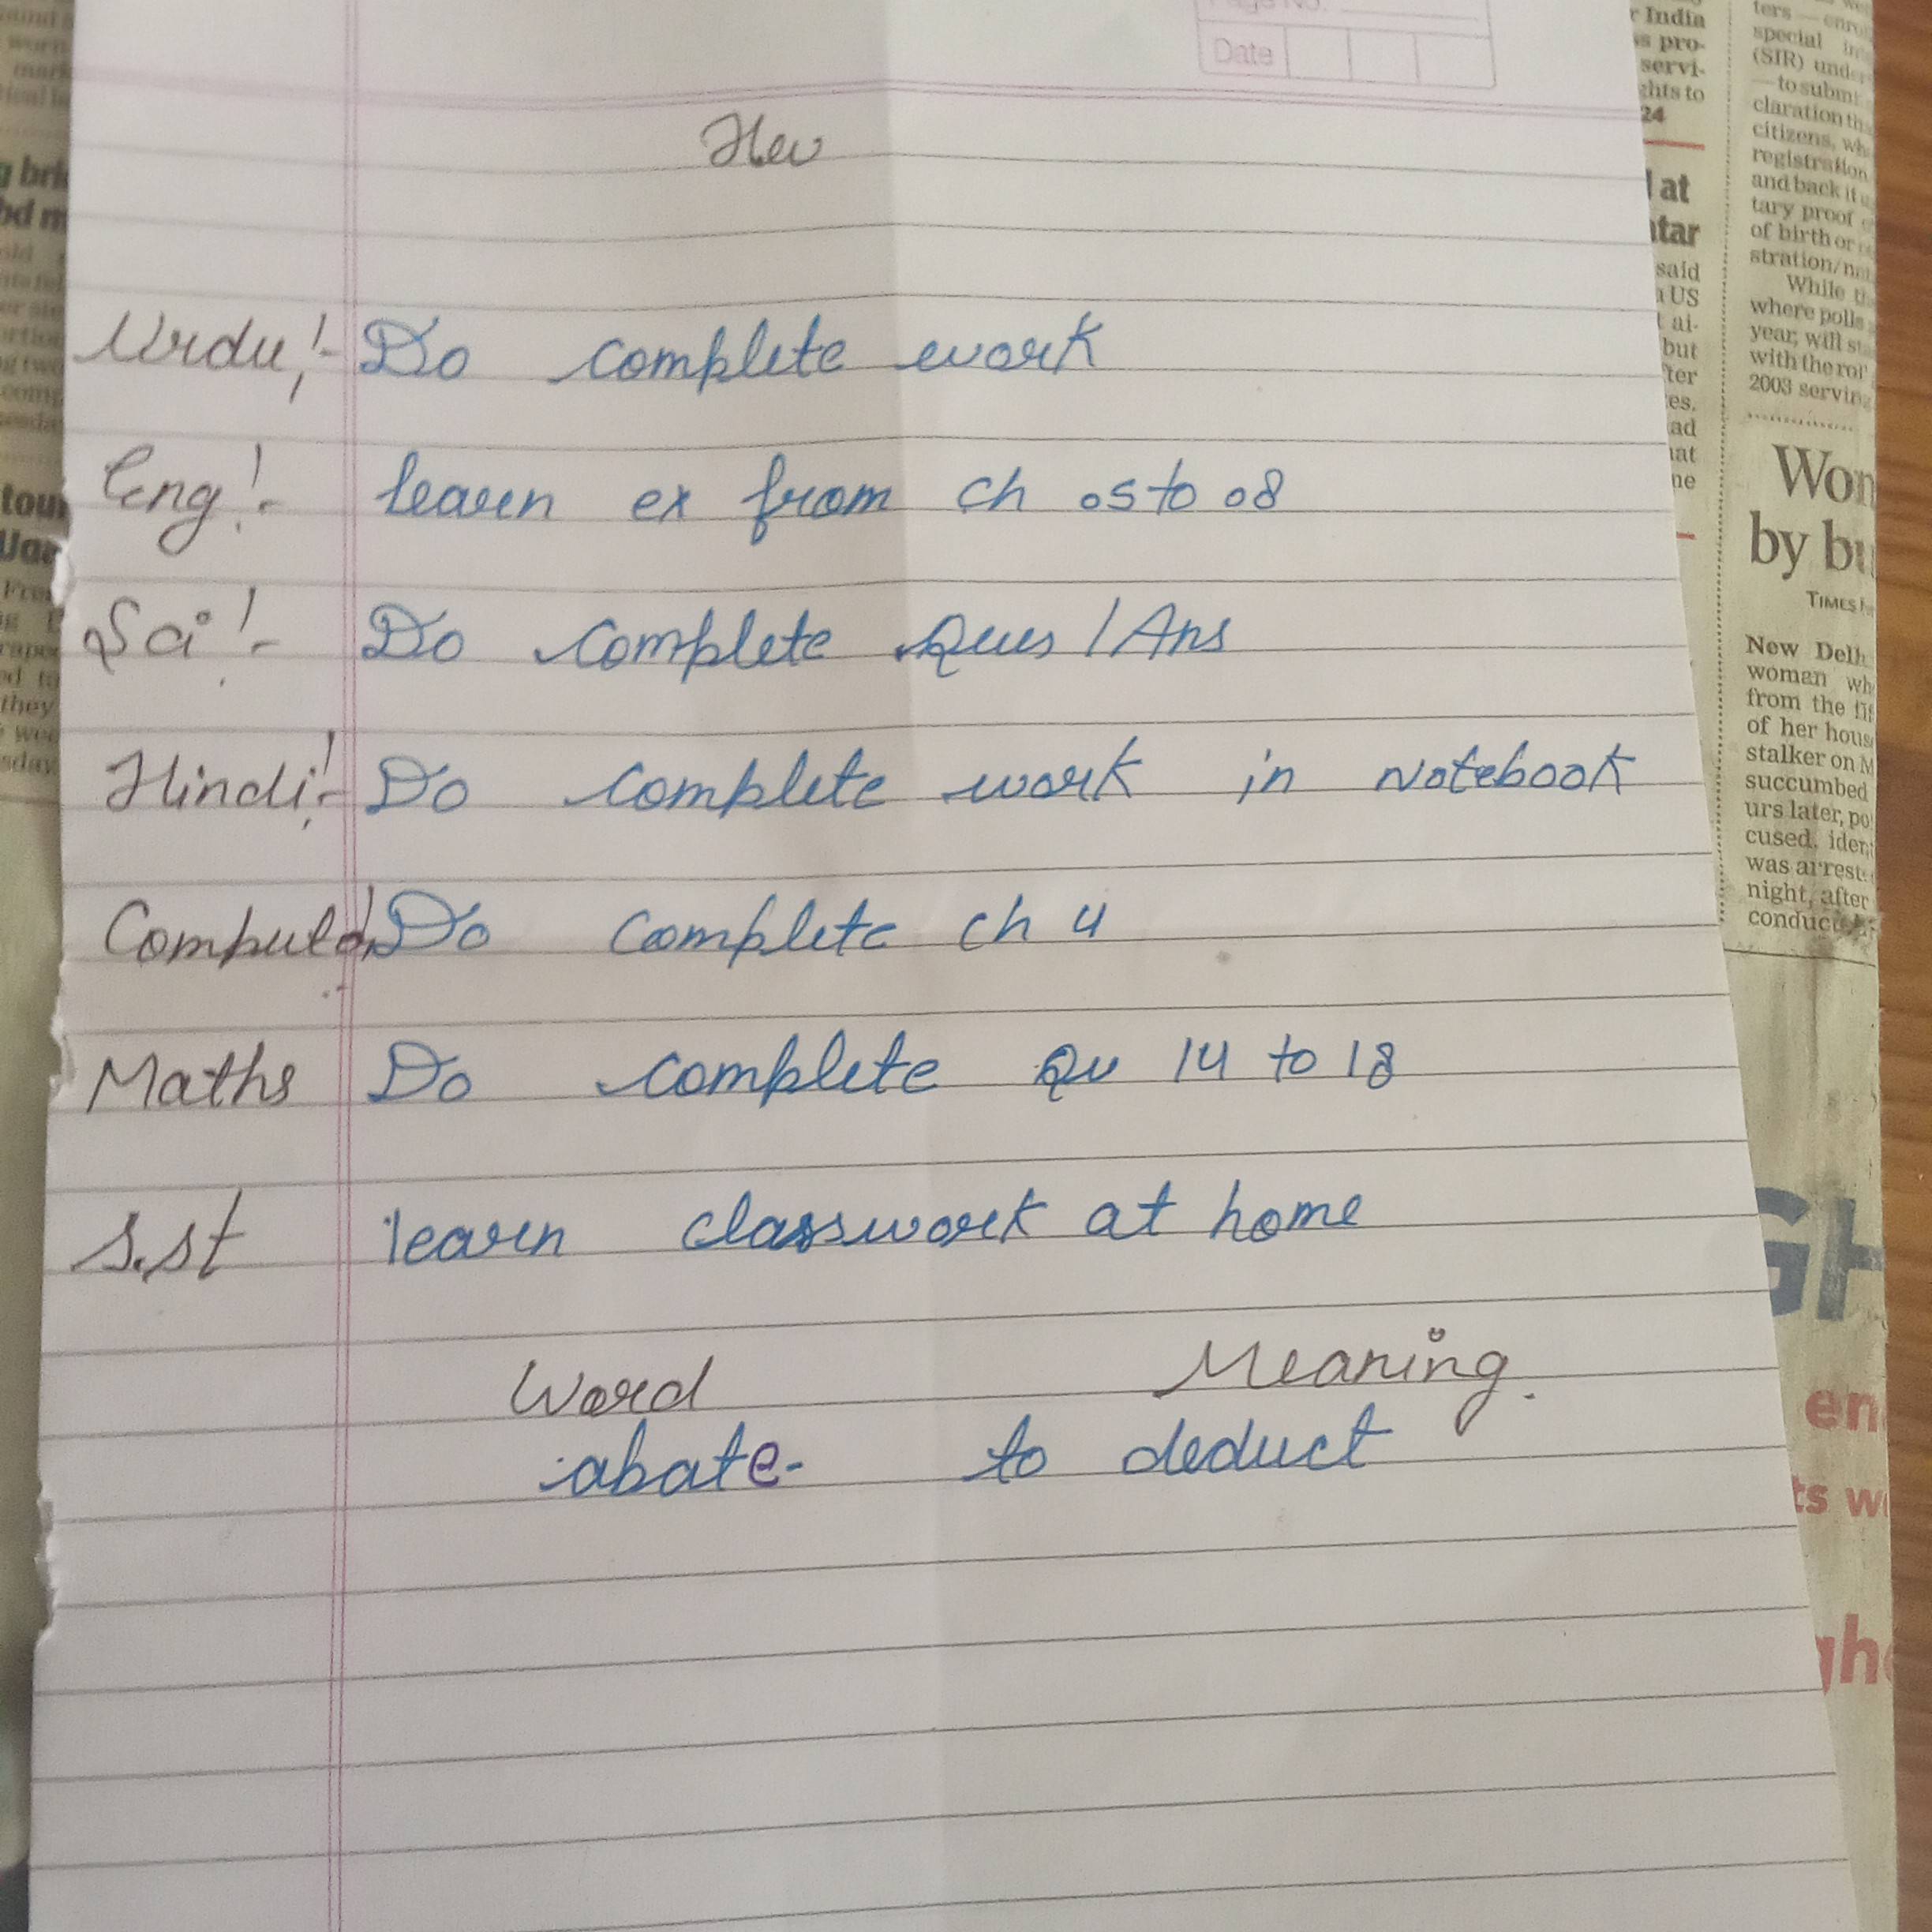 Page No.
Date
Hw
Urdu:- Do complete work
Eng:- learn ex from ch 05 to 08
Sci:- Do complete Ques / Ans
Hindi:- Do complete work in Notebook
Computer Do complete ch 4
Maths Do complete Qu 14 to 18
S.st learn classwork at home
Word Meaning.
abate- to deduct
r India
pro-
servi-
ghts to
24
at
ntar
said
US
ai-
but
ter
es.
ad
nat
ne
ters — enro
special in
(SIR) under
— to submi
claration th
citizens, wh
registration
and back it u
tary proof
of birth or
stration/na
While th
where polls
year, will st
with the rol
2003 serving
Won
by bu
TIMES
New Delh
woman wh
from the fif
of her hous
stalker on M
succumbed
urs later, po
cused, iden
was arreste
night, after
conduc
GH
en
ts w
gh